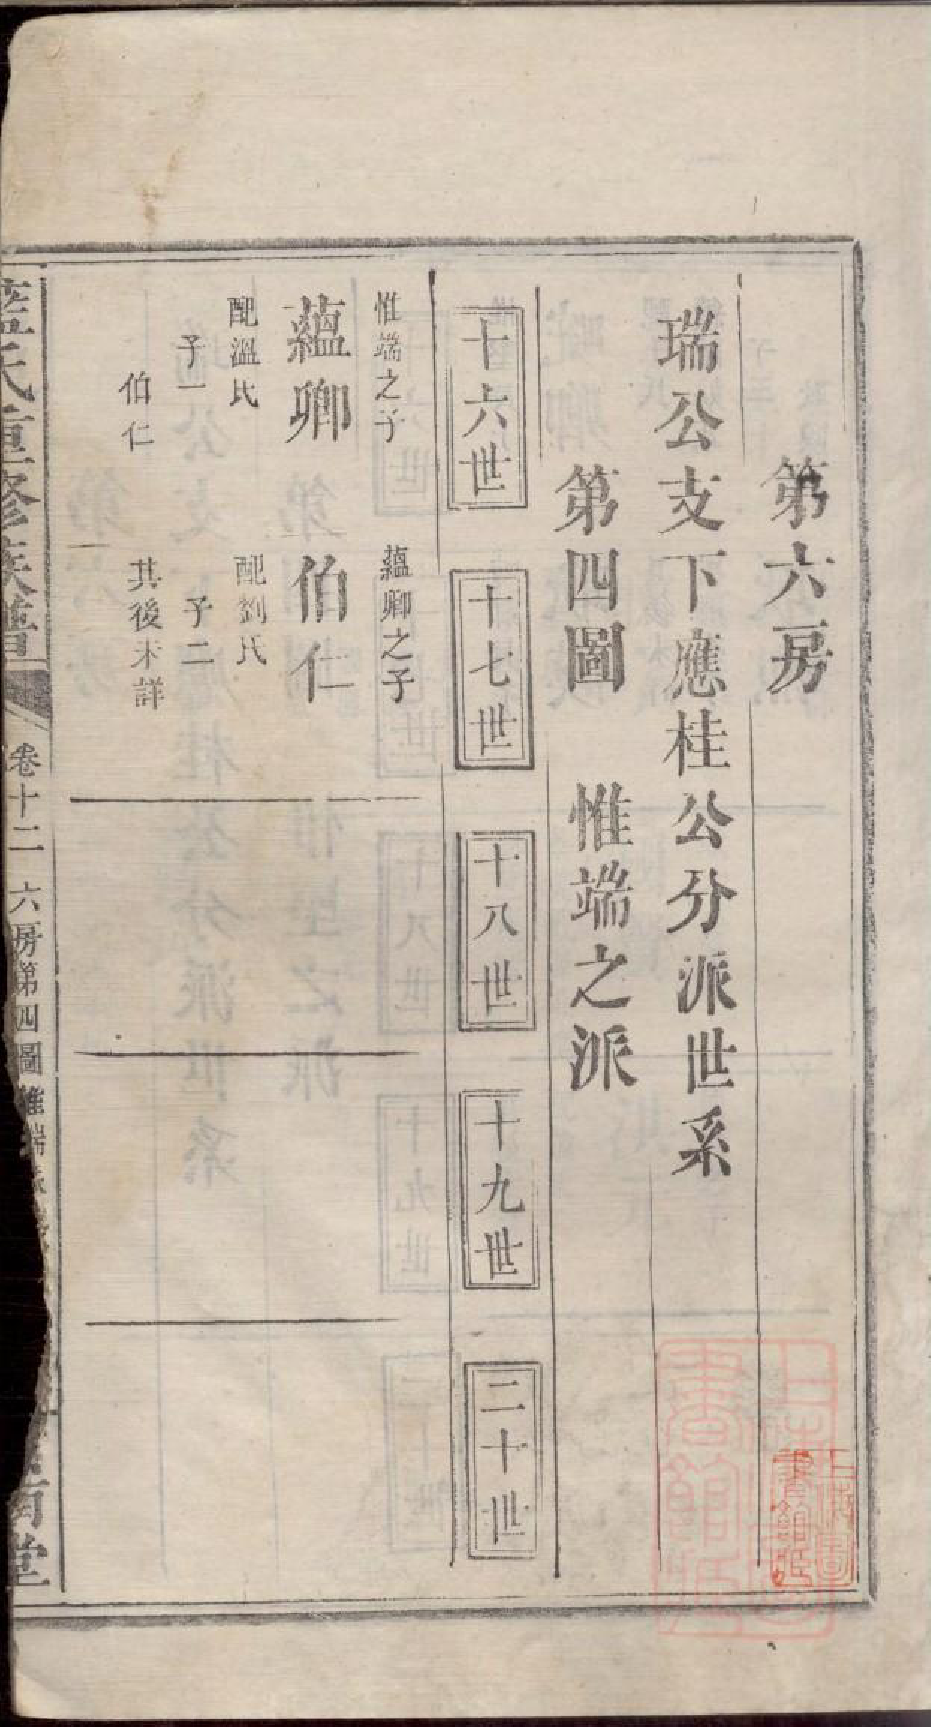 第六房
瑞公支下應桂公分派世系
第四圖　惟端之派
十六世
十七世
十八世
十九世
二十世
惟端之子
蘊卿
配溫氏
子一
伯仁
蘊卿之子
伯仁
配劉氏
子二
其後未詳
藍氏重修族譜
卷十二　六房第四圖惟端派
堂
上海圖書館藏